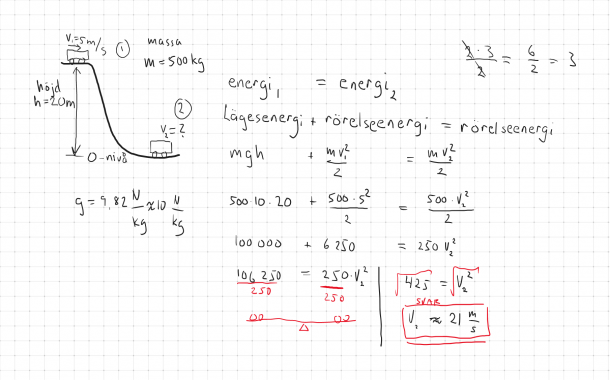 v₁=5m/s ①
massa
m = 500 kg
höjd
h = 20m
②
v₂ = ?
0-nivå
g = 9,82 N/kg ≈ 10 N/kg
2·3/2 = 6/2 = 3
energi₁ = energi₂
Lägesenergi + rörelseenergi = rörelseenergi
mgh + mv₁²/2 = mv₂²/2
500·10·20 + 500·5²/2 = 500·v₂²/2
100 000 + 6 250 = 250 v₂²
106 250/250 = 250·v₂²/250
√425 = √v₂²
SVAR
v₂ ≈ 21 m/s